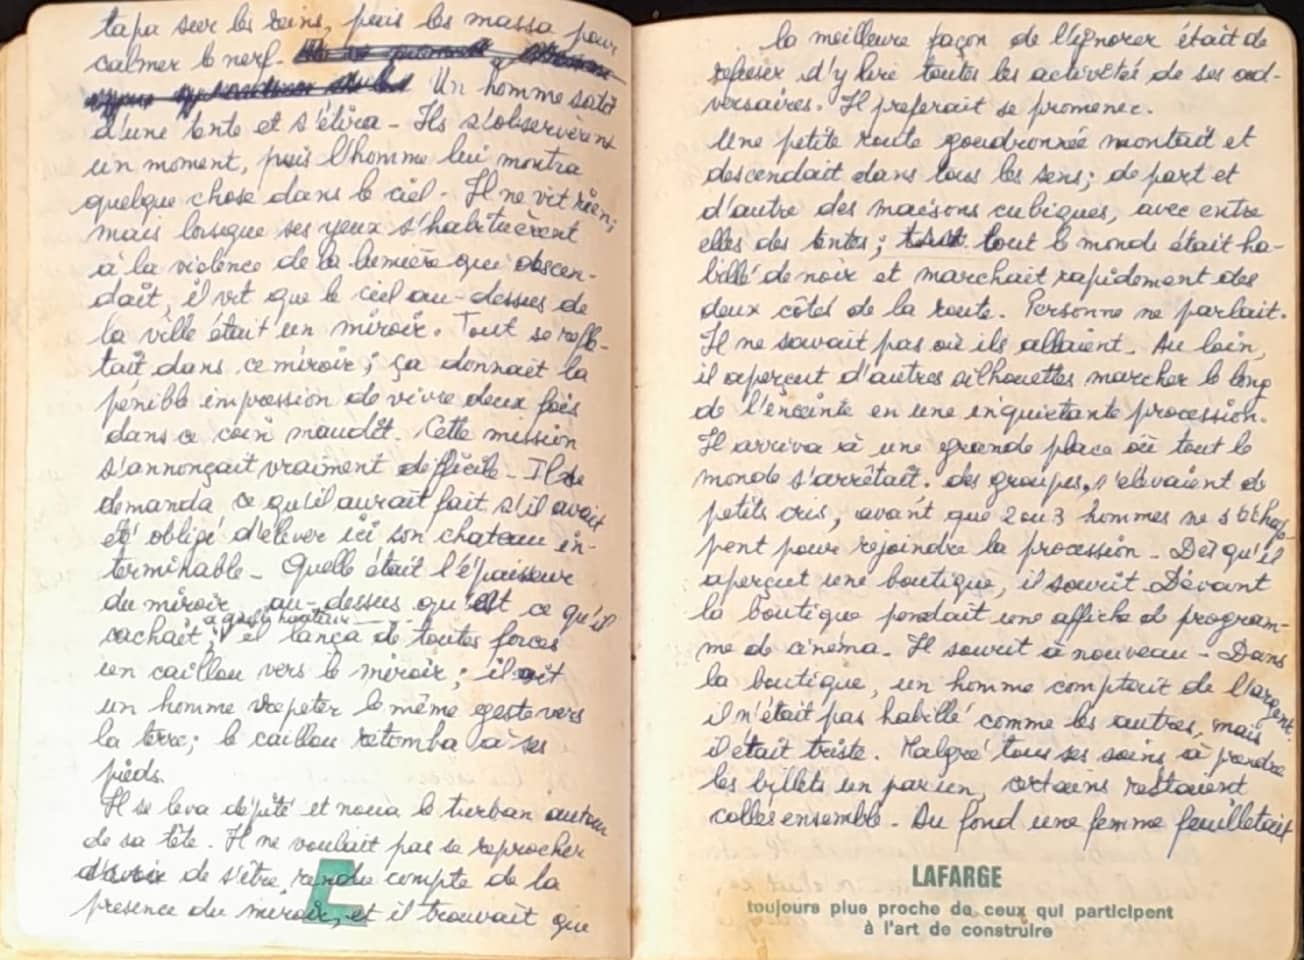 tapa sur les reins, puis les massa pour
calmer le nerf.
Un homme sotit
d'une tente et s'étira - Ils s'observèrent
un moment, puis l'homme lui montra
quelque chose dans le ciel - Il ne vit rien;
mais lorsque ses yeux s'habituèrent
à la violence de la lumière qui descen-
dait, il vit que le ciel au-dessus de
la ville était un miroir. Tout se reflé-
tait dans ce miroir; ça donnait la
pénible impression de vivre deux fois
dans ce coin maudit. Cette mission
s'annonçait vraiment difficile - Il se
demanda ce qu'il aurait fait s'il avait
été obligé d'élever ici son chateau in-
terminable - Quelle était l'épaisseur
du miroir, au-dessus qu'est ce qu'il
cachait; il lança de toutes forces
un caillou vers le miroir; il vit
un homme repeter le même geste vers
la terre; le caillou retomba à ses
pieds.
Il se leva dépité et noua le turban autour
de sa tête. Il ne voulait pas se reprocher
de s'être rendu compte de la
presence du miroir, et il trouvait que
la meilleure façon de l'ignorer était de
refuser d'y lire toutes les activités de ses ad-
versaires. Il preferait se promener.
Une petite route goudronnée montait et
descendait dans tous les sens; de part et
d'autre des maisons cubiques, avec entre
elles des tentes; tout le monde était ha-
billé de noir et marchait rapidement des
deux côtés de la route. Personne ne parlait.
Il ne savait pas où ils allaient - Au loin,
il aperçut d'autres silhouettes marcher le long
de l'enceinte en une inquietante procession.
Il arriva à une grande place où tout le
monde s'arrêtait. des groupes, s'élevaient de
petits cris, avant que 2 ou 3 hommes ne s'échap-
pent pour rejoindre la procession - Dès qu'il
aperçut une boutique, il sourit Devant
la boutique pendait une affiche de program-
me de cinéma - Il sourit à nouveau - Dans
la boutique, un homme comptait de l'argent.
il n'était pas habillé comme les autres, mais
il était triste. Malgré tous ses soins à prendre
les billets un par un, certains restaient
collés ensemble - Au fond une femme feuilletait
LAFARGE
toujours plus proche de ceux qui participent
à l'art de construire